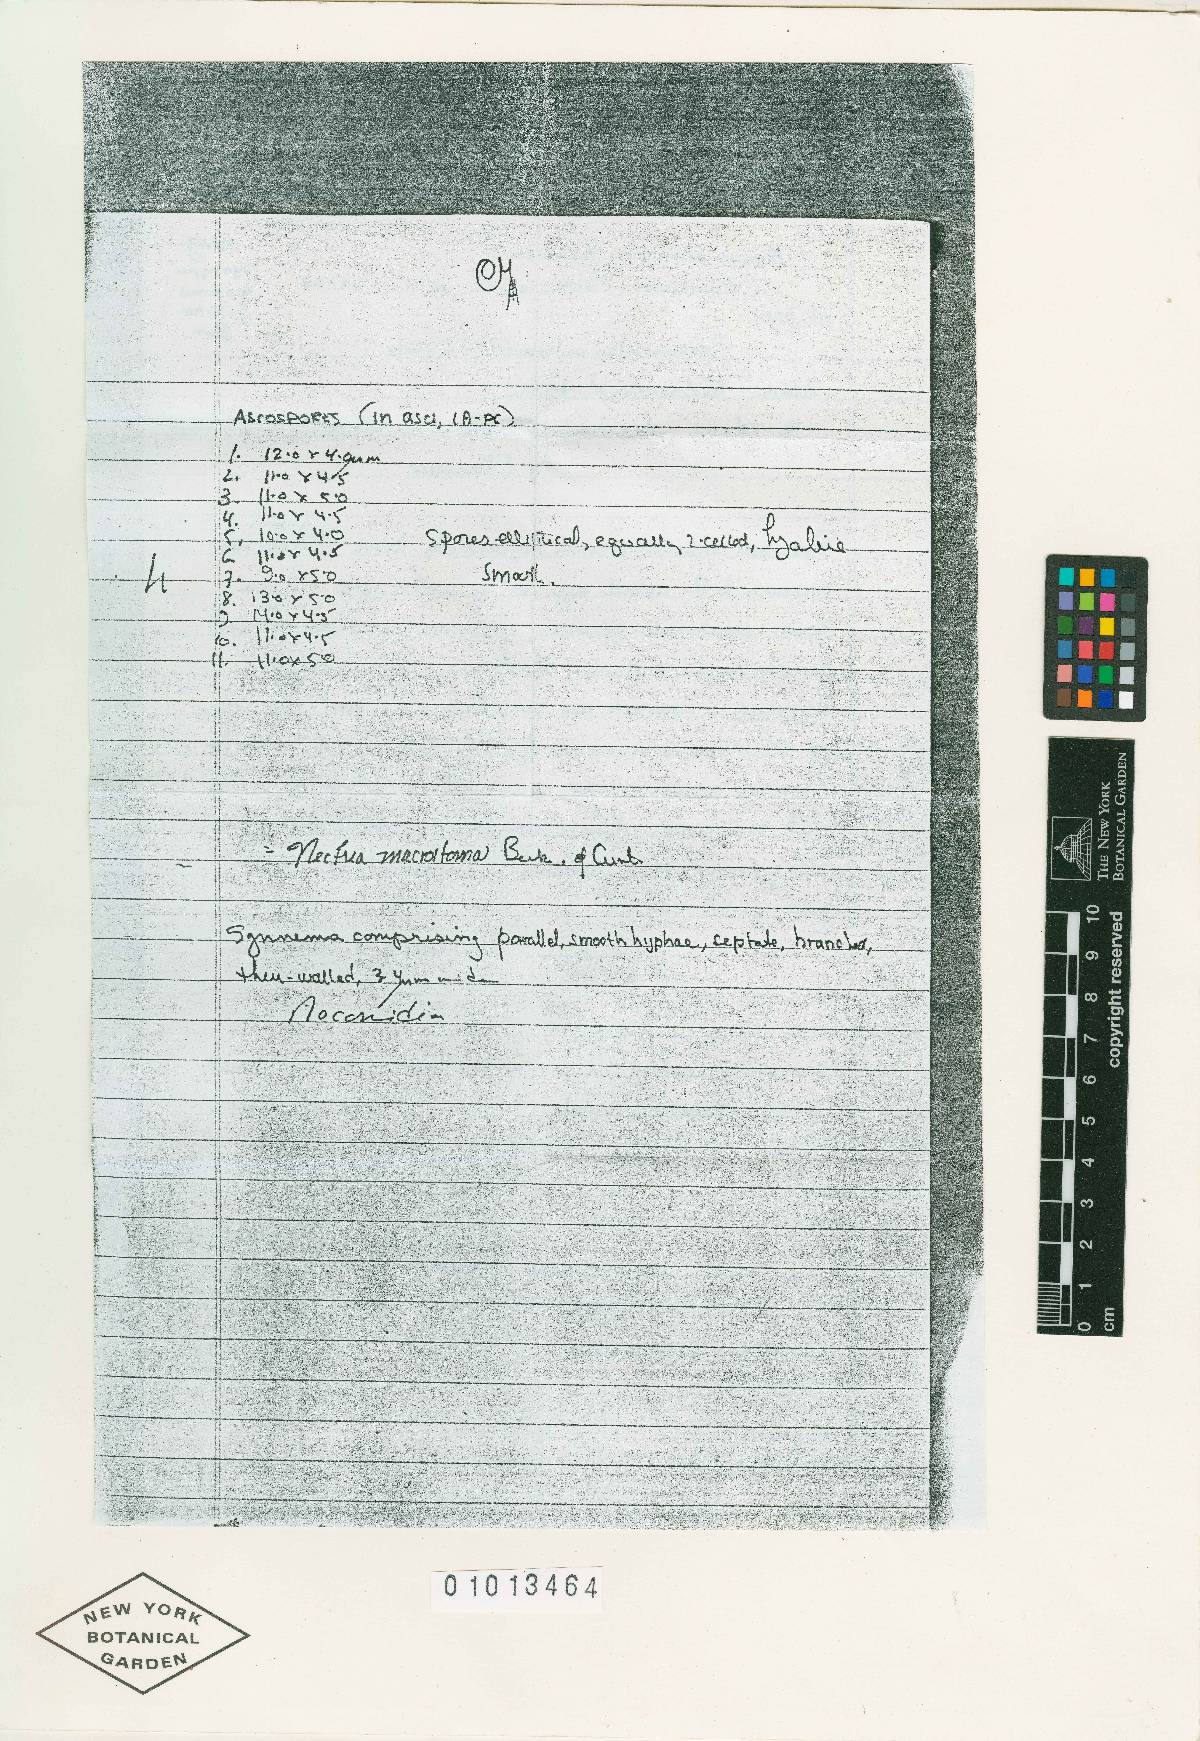 ASCOSPORES (in asci, LA-PC)
1. 12.0 x 4.0 µm
2. 11.0 x 4.5
3. 11.0 x 5.0
4. 11.0 x 4.5
5. 10.0 x 4.0
6. 11.0 x 4.5
7. 9.0 x 5.0
8. 13.0 x 5.0
9. 14.0 x 4.5
10. 11.0 x 4.5
11. 11.0 x 5.0
Spores elliptical, equally 2-celled, hyaline
smooth.
4
= Nectria macrostoma Berk. & Curt.
Synnema comprising parallel, smooth hyphae, septate, branched,
thin-walled, 3 µm wide
No conidia
01013464
NEW YORK
BOTANICAL
GARDEN
THE NEW YORK
BOTANICAL GARDEN
copyright reserved
0 1 2 3 4 5 6 7 8 9 10
cm